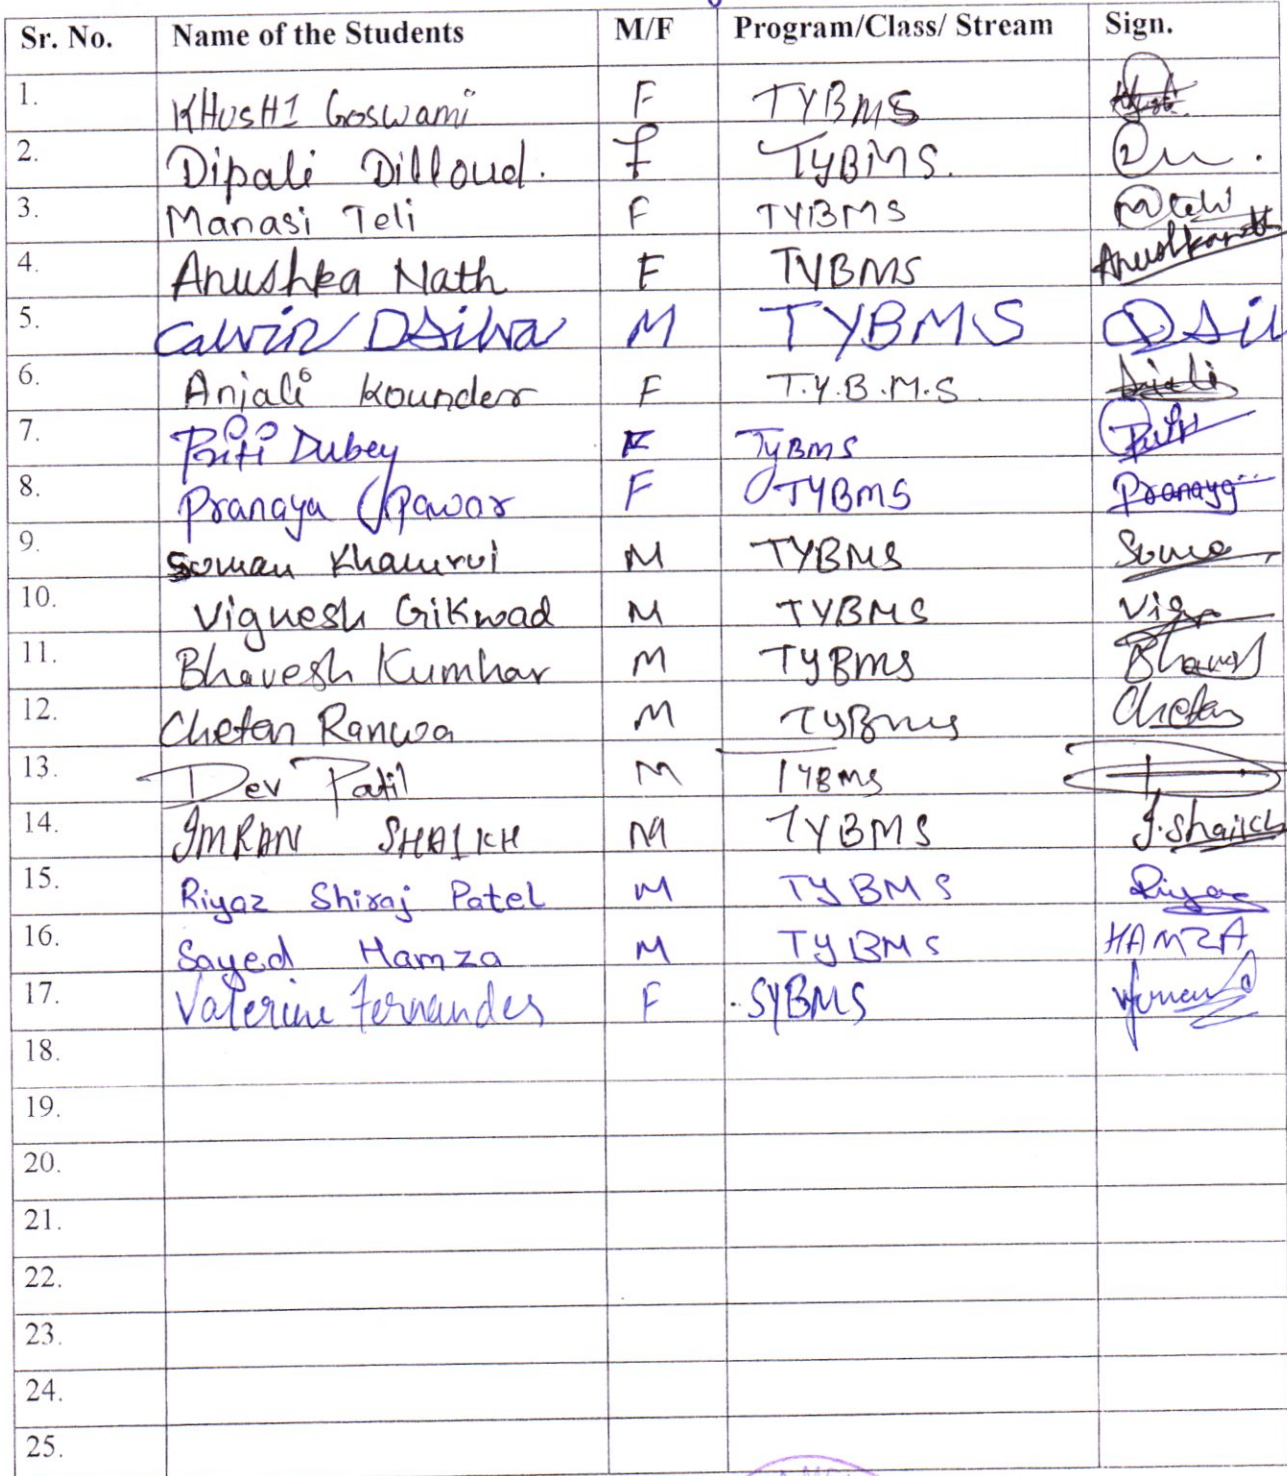 Sr. No. Name of the Students M/F Program/Class/ Stream Sign.
1. KHUSHI Goswami F TYBMS
2. Dipali Dilloud. F TYBMS.
3. Manasi Teli F TYBMS
4. Anushka Nath F TYBMS Anushkanath
5. Calvin DSilva M TYBMS DSil
6. Anjali Kounder F T.Y.B.M.S. Anjali
7. Priti Dubey F TyBMS Priti
8. Pranaya Pawar F TYBMS Pranaya
9. Suman M TYBMS Suma
10. Vignesh Gikwad M TYBMS Vig
11. Bhavesh Kumhar M TYBMS Bhavesh
12. Chetan Ranwa M TYBMS Chetan
13. Dev Patil M TYBMS
14. IMRAN SHAIKH M TYBMS I.Shaikh
15. Riyaz Shiraj Patel M TYBMS Riyaz
16. Sayed Hamza M TYBMS HAMZA
17. Valerine Fernandes F SYBMS
18.
19.
20.
21.
22.
23.
24.
25.